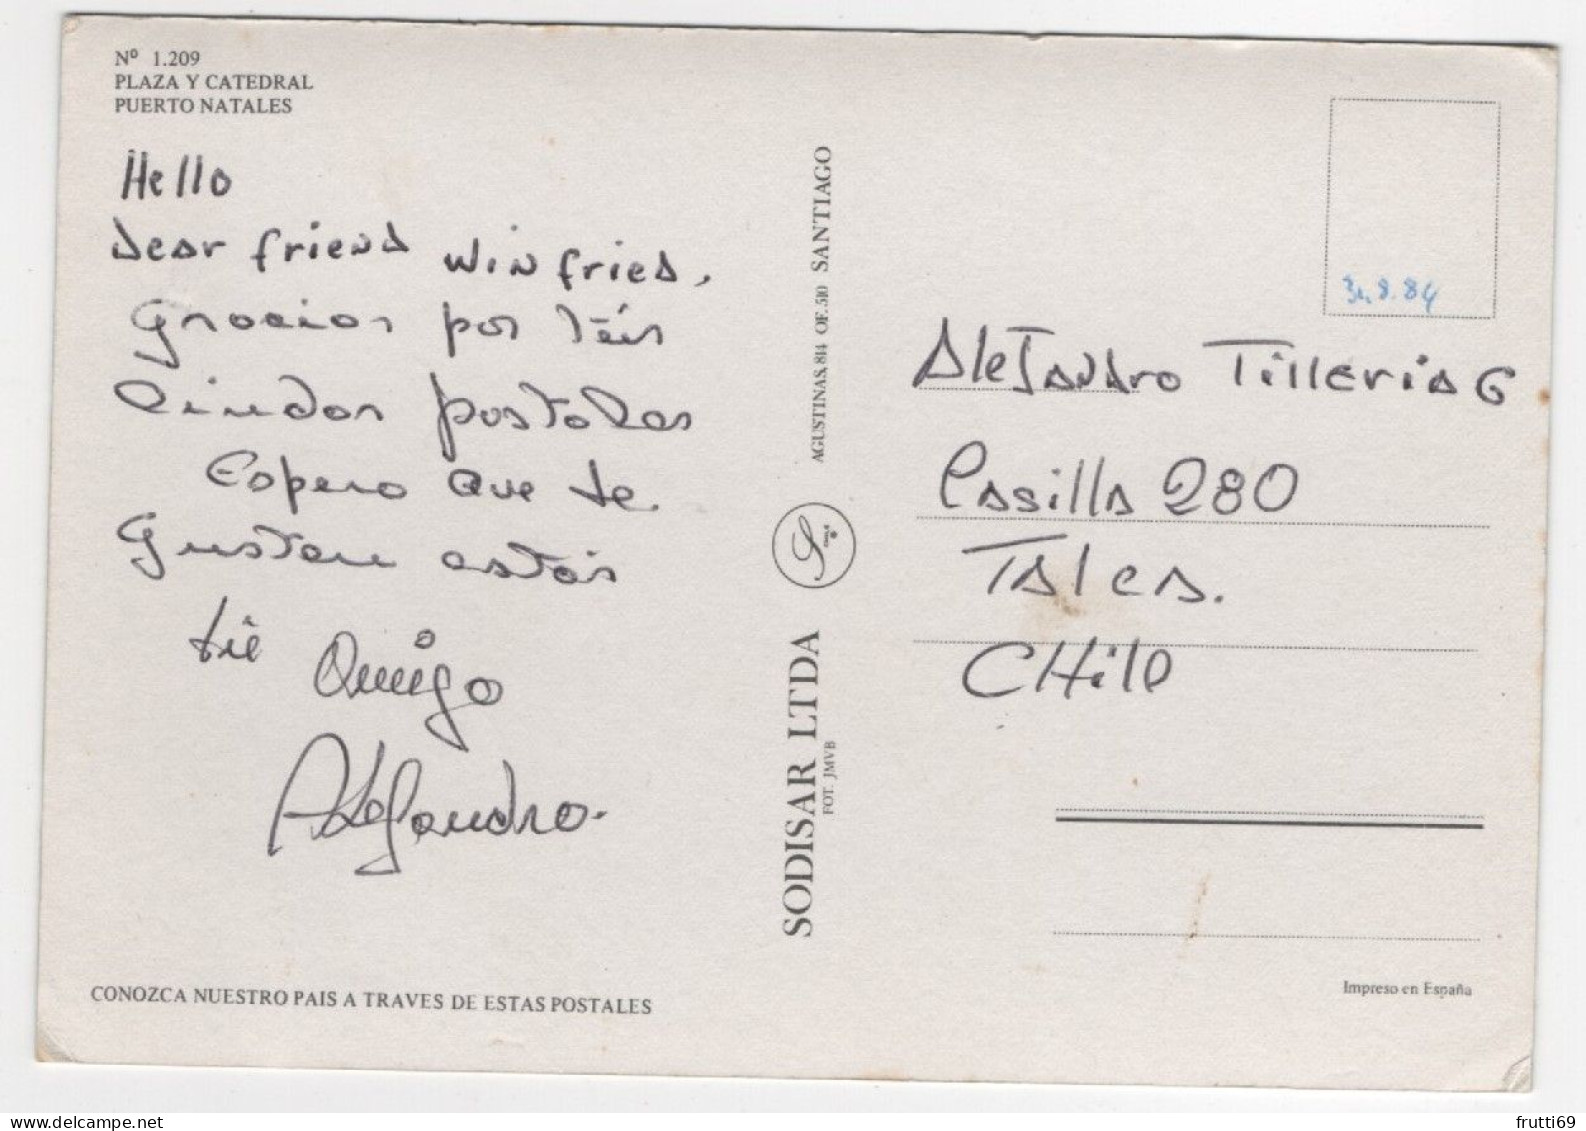 Nº 1.209
PLAZA Y CATEDRAL
PUERTO NATALES
Hello
Dear friend Winfried,
Gracias por
lindas postales
Espero que te
Gusten estás
tu Amigo
Alejandro.
CONOZCA NUESTRO PAIS A TRAVES DE ESTAS POSTALES
AGUSTINAS, 814 OF. 510 SANTIAGO
SODISAR LTDA
FOT. JMVB
31.8.84
Alejandro Tilleria G
Casilla 280
Talca.
CHile
Impreso en España
www.delcampe.net
frutti69